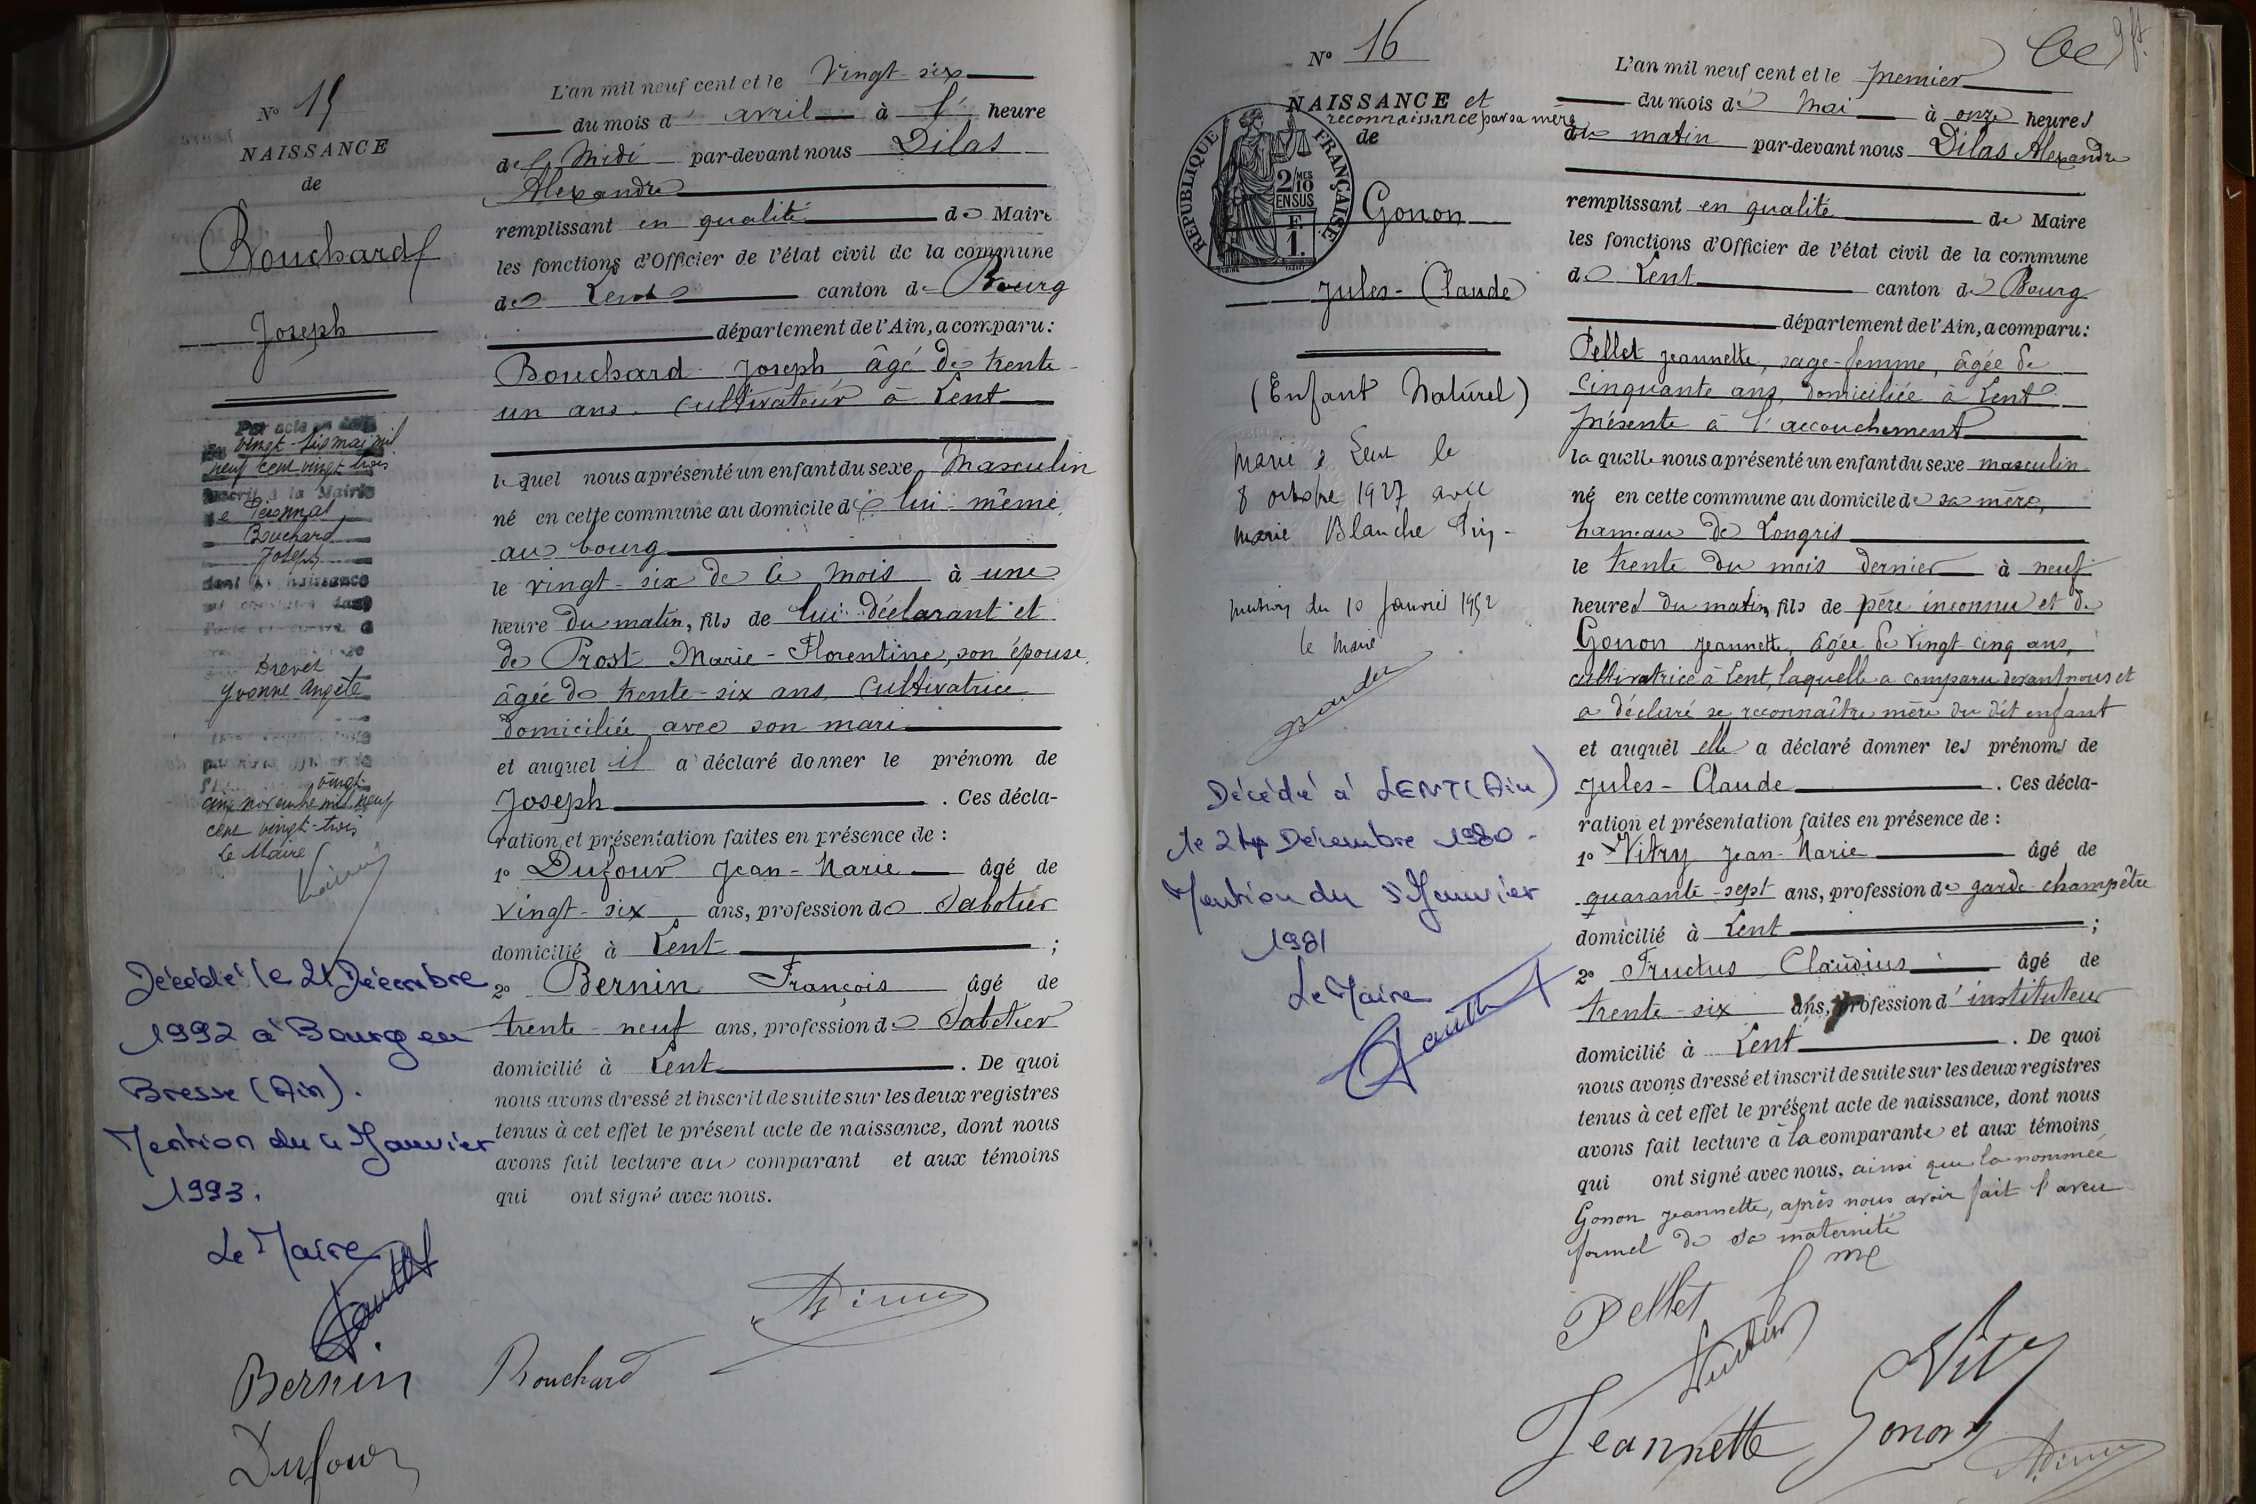 N° 15
NAISSANCE
de
Bouchard
Joseph
vingt-six mai mil
neuf cent vingt trois
inscrit à la Mairie
de Péronnas
Bouchard
Joseph
dont la naissance
Drevet
Yvonne Angèle
vingt
cinq novembre mil neuf
cent vingt-trois
Le Maire
Décédé le 21 Décembre
1992 à Bourg en
Bresse (Ain).
Mention du 4 Janvier
1993.
Le Maire
L'an mil neuf cent et le Vingt-six
du mois d'avril à 1' heure
de le Midi par-devant nous Dilas
Alexandre
remplissant en qualité de Maire
les fonctions d'Officier de l'état civil de la commune
de Lent canton de Bourg
département de l'Ain, a comparu:
Bouchard Joseph âgé de trente
un ans. cultivateur à Lent
lequel nous a présenté un enfant du sexe Masculin
né en cette commune au domicile de lui-même,
au bourg
le vingt-six de ce mois à une
heure du matin, fils de lui déclarant et
de Prost Marie-Florentine, son épouse,
âgée de trente-six ans, cultivatrice
domiciliée avec son mari
et auquel il a déclaré donner le prénom de
Joseph. Ces décla-
ration et présentation faites en présence de :
1° Dufour Jean-Marie âgé de
vingt-six ans, profession de Sabotier
domicilié à Lent ;
2° Bernin François âgé de
trente-neuf ans, profession de Sabotier
domicilié à Lent. De quoi
nous avons dressé et inscrit de suite sur les deux registres
tenus à cet effet le présent acte de naissance, dont nous
avons fait lecture au comparant et aux témoins
qui ont signé avec nous.
Bernin
Bouchard
Dufour
N° 16
NAISSANCE et
reconnaissance par sa mère
de
RÉPUBLIQUE FRANÇAISE
2/10 MES
EN SUS
F
1.
Gonon
Jules-Claude
(Enfant Naturel)
Marié à Lent le
8 octobre 1927 avec
Marie Blanche
mention du 10 Janvier 1952
le Maire
Décédé à LENT (Ain)
le 24 Décembre 1980-
Mention du 5 Janvier
1981
Le Maire
L'an mil neuf cent et le premier
du mois de Mai à onze heures
du matin par-devant nous Dilas Alexandre
remplissant en qualité de Maire
les fonctions d'Officier de l'état civil de la commune
de Lent canton de Bourg
département de l'Ain, a comparu:
Pellet Jeannette, sage-femme, âgée de
cinquante ans, domiciliée à Lent
présente à l'accouchement
laquelle nous a présenté un enfant du sexe masculin
né en cette commune au domicile de sa mère,
hameau de Longris
le trente du mois dernier à neuf
heures du matin, fils de père inconnu et de
Gonon Jeannette, âgée de vingt-cinq ans,
cultivatrice à Lent, laquelle a comparu devant nous et
a déclaré se reconnaître mère du dit enfant
et auquel elle a déclaré donner les prénoms de
Jules-Claude. Ces décla-
ration et présentation faites en présence de :
1° Vitry Jean-Marie âgé de
quarante-sept ans, profession de garde-champêtre
domicilié à Lent ;
2° Fructus Claudius âgé de
trente-six ans, profession d'instituteur
domicilié à Lent. De quoi
nous avons dressé et inscrit de suite sur les deux registres
tenus à cet effet le présent acte de naissance, dont nous
avons fait lecture à la comparante et aux témoins
qui ont signé avec nous, ainsi que la nommée
Gonon Jeannette, après nous avoir fait l'aveu
formel de sa maternité
Pellet fme
Vitry
Jeannette Gonon